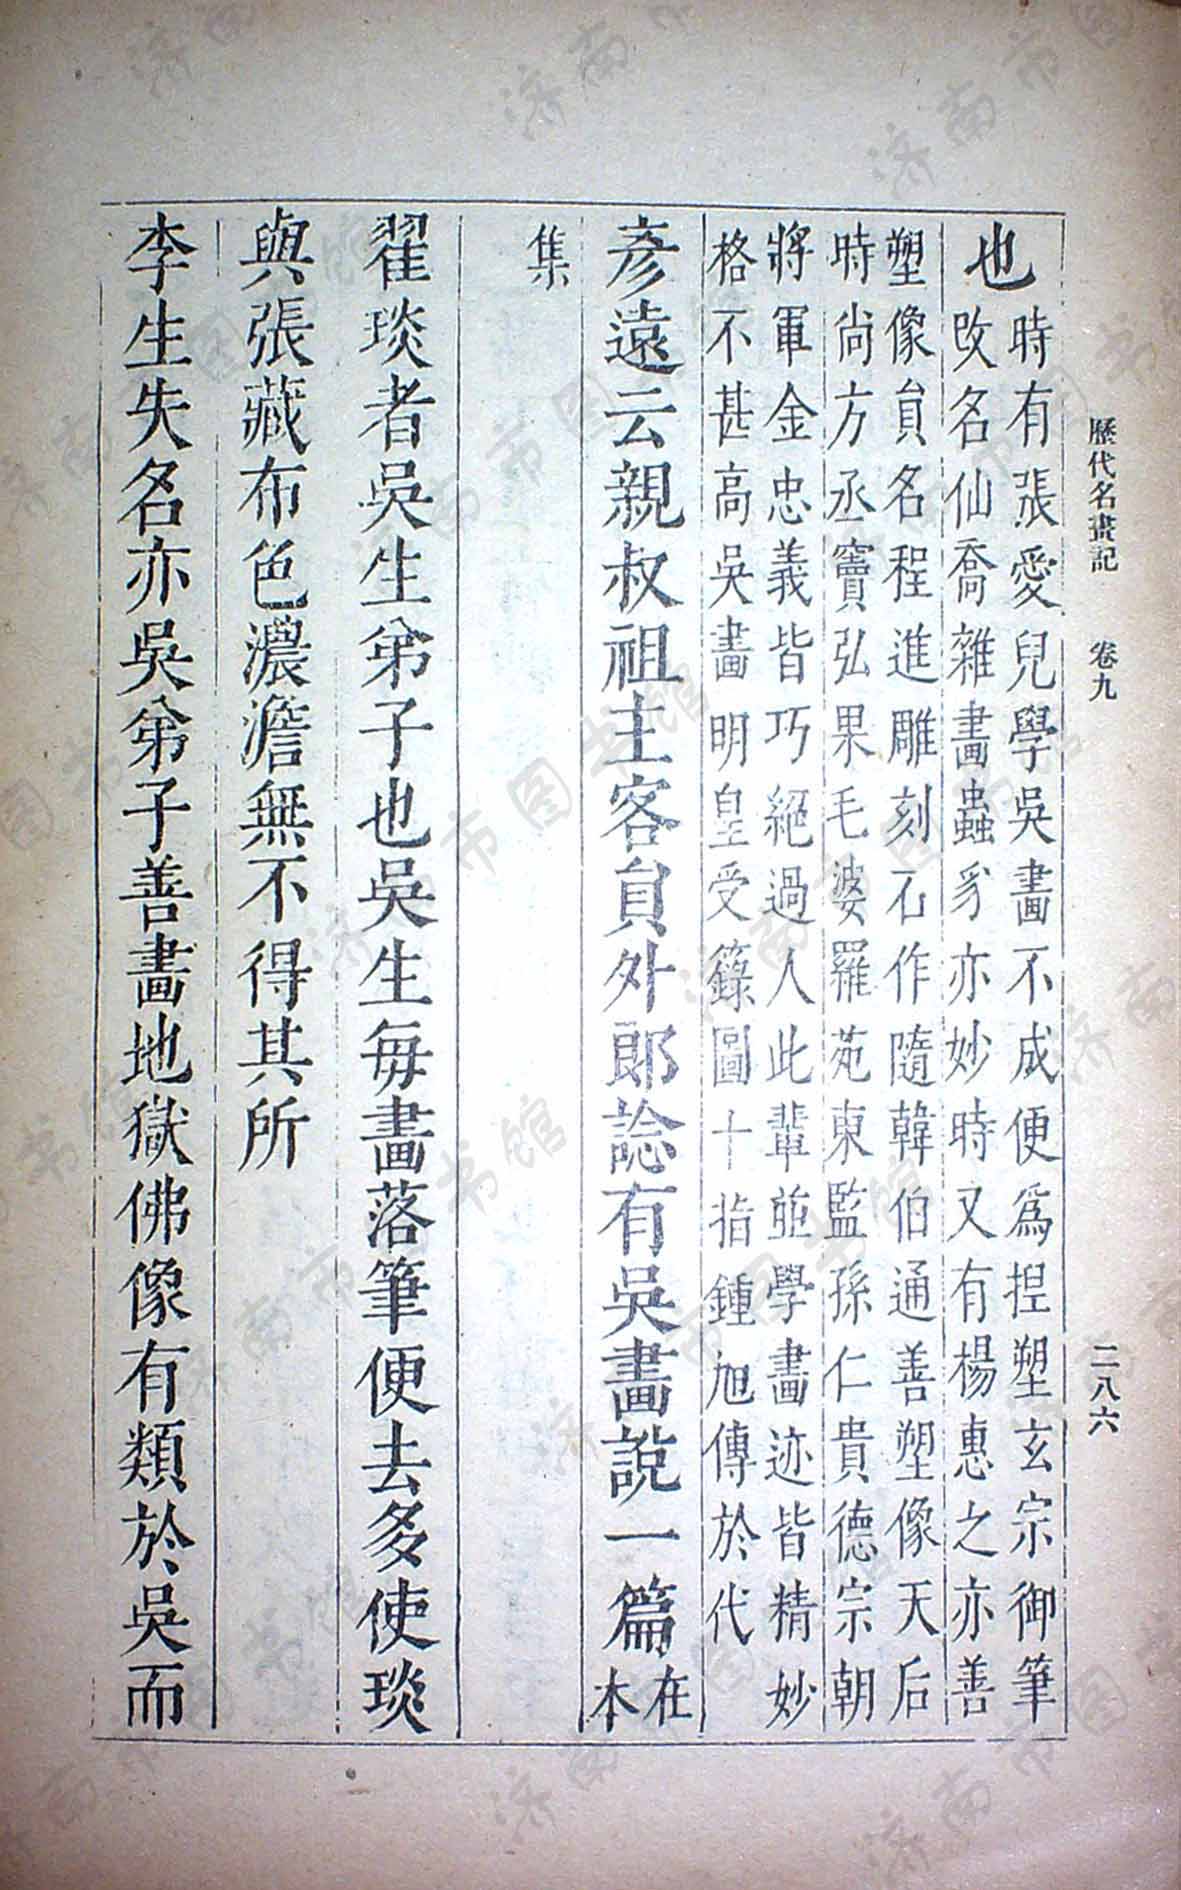 歷代名畫記 卷九 二八六
也時有張愛兒學吳畫不成便爲揑塑玄宗御筆
攺名仙喬雜畫蟲豸亦妙時又有楊惠之亦善
塑像貟名程進雕刻石作隨韓伯通善塑像天后
時尚方丞竇弘果毛婆羅苑東監孫仁貴德宗朝
將軍金忠義皆巧絕過人此輩並學畫迹皆精妙
格不甚高吳畫明皇受籙圖十指鍾旭傳於代
彥遠云親叔祖主客貟外郎諗有吳畫說一篇在本
集
翟琰者吳生弟子也吳生每畫落筆便去多使琰
與張藏布色濃澹無不得其所
李生失名亦吳弟子善畫地獄佛像有類於吳而
济南市图书馆